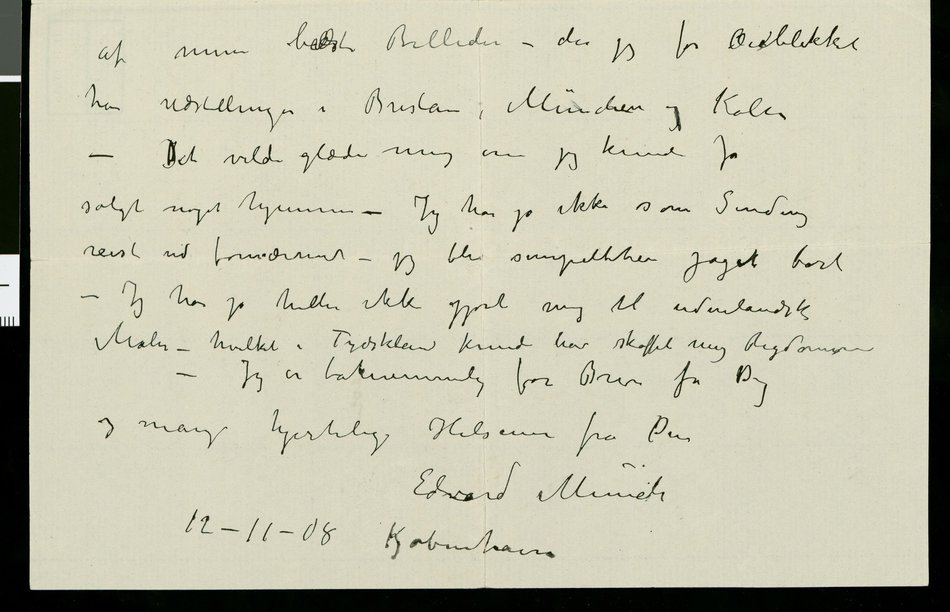 af mine bedste Billeder – da jeg for Øieblikket
har udstillinger i Breslau, München og Køln
– Det vilde glæde mig om jeg kunde få
solgt noget hjemme – Jeg har jo ikke som Sinding
reist ud fornærmet – jeg ble simpelthen jaget bort
– Jeg har jo heller ikke gjort mig til udenlandsk
Maler – hvilket i Tydskland kunde hav skaffet mig Rigdomme
– Jeg er taknemmelig for Breve fra Dig
og mange hjertelige Hilsener fra Din
Edvard Munch
12–11–08 Kjøbenhavn